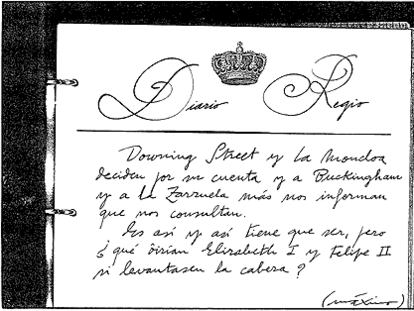 Diario Regio
Downing Street y La Moncloa
deciden por su cuenta y a Buckingham
y a la Zarzuela más nos informan
que nos consultan.
Es así y así tiene que ser, pero
¿qué dirían Elizabeth I y Felipe II
si levantasen la cabeza?
(máximo)